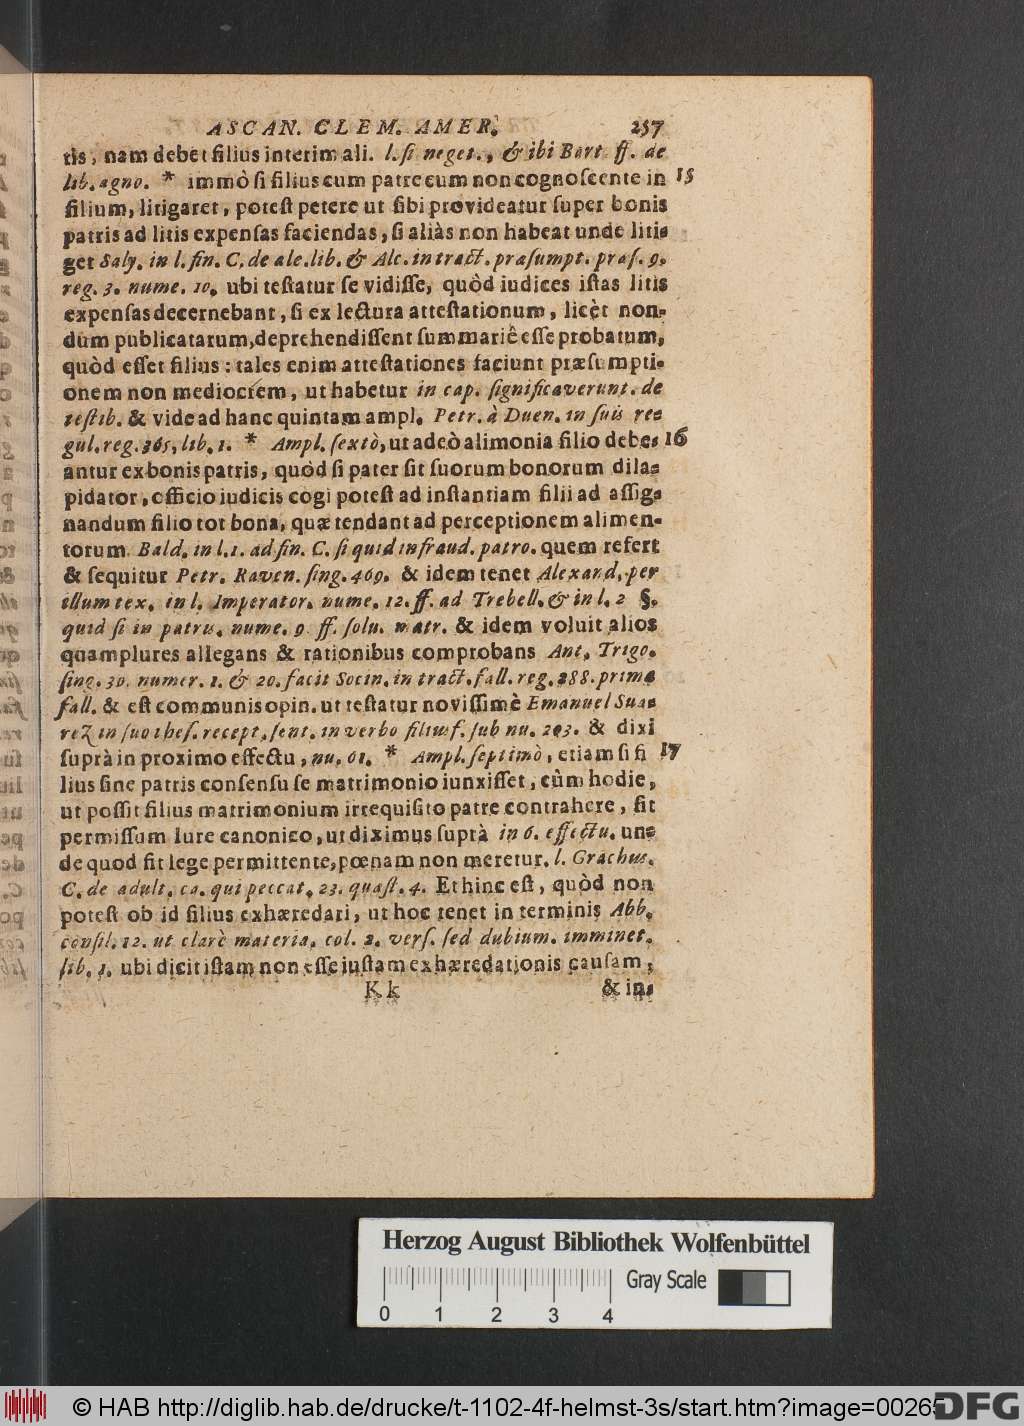 ASCAN. CLEM. AMER. 257
tis, nam debet filius interim ali. l. ſi neget., & ibi Bart. ff. de
lib. agno. * immò ſi filius cum patre eum non cognoſcente in 15
filium, litigaret, poteſt petere ut ſibi provideatur ſuper bonis
patris ad litis expenſas faciendas, ſi aliàs non habeat unde liti-
get Saly. in l. fin. C. de ale. lib. & Alc. in tract. præſumpt. præſ. 9.
reg. 3. nume. 10. ubi teſtatur ſe vidiſſe, quòd iudices iſtas litis
expenſas decernebant, ſi ex lectura atteſtationum, licèt non-
dum publicatarum, deprehendiſſent ſummariè eſſe probatum,
quòd eſſet filius: tales enim atteſtationes faciunt præſumpti-
onem non mediocrem, ut habetur in cap. ſignificaverunt. de
teſtib. & vide ad hanc quintam ampl. Petr. à Duen. in ſuis re-
gul. reg. 365. lib. 1. * Ampl. ſextò, ut adeò alimonia filio debe- 16
antur ex bonis patris, quòd ſi pater ſit ſuorum bonorum dila-
pidator, officio iudicis cogi poteſt ad inſtantiam filii ad aſſig-
nandum filio tot bona, quæ tendant ad perceptionem alimen-
torum. Bald. in l. 1. ad fin. C. ſi quid in fraud. patro. quem refert
& ſequitur Petr. Raven. ſing. 469. & idem tenet Alexand. per
illum tex. in l. Imperator. nume. 12. ff. ad Trebell. & in l. 2 §.
quid ſi in patris. nume. 9 ff. ſolu. matr. & idem voluit alios
quamplures allegans & rationibus comprobans Ant. Trigo.
ſing. 30. numer. 1. & 20. facit Socin. in tract. fall. reg. 288. prima
fall. & eſt communis opin. ut teſtatur noviſſimè Emanuel Sua-
rez in ſuo theſ. recept. ſent. in verbo filius f. ſub nu. 203. & dixi
ſuprà in proximo effectu, nu. 61. * Ampl. ſeptimò, etiam ſi fi 17
lius ſine patris conſenſu ſe matrimonio iunxiſſet, cùm hodie,
ut poſſit filius matrimonium irrequiſito patre contrahere, ſit
permiſſum Iure canonico, ut diximus ſuprà in 6. effectu. un-
de quod fit lege permittente, pœnam non meretur. l. Grachus.
C. de adult. ca. qui peccat. 23. quæſt. 4. Et hinc eſt, quòd non
poteſt ob id filius exhæredari, ut hoc tenet in terminis Abb.
conſil. 12. ut clarè materia, col. 2. verſ. ſed dubium. imminet.
lib. 1. ubi dicit iſtam non eſſe juſtam exhæredationis cauſam,
K k & in-
Herzog August Bibliothek Wolfenbüttel
Gray Scale
0 1 2 3 4
© HAB http://diglib.hab.de/drucke/t-1102-4f-helmst-3s/start.htm?image=00265
DFG